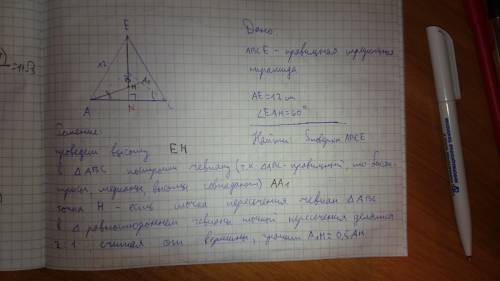 E
12
B
H
A₁
A
N
Дано
ABCE – правильная треугольная
пирамида
AE = 12 см
∠EAH = 60°
Найти: Sповерхн ABCE
Решение
проведем высоту EH
В ΔABC построим чевиану (т.к ΔABC - правильный, то биссек-
трисы, медианы, высоты совпадают) AA₁
точка H - есть точка пересечения чевиан ΔABC
В Δ равностороннем чевианы точкой пересечения делятся
2:1 считая от вершины, значит A₁H = 0,5AH